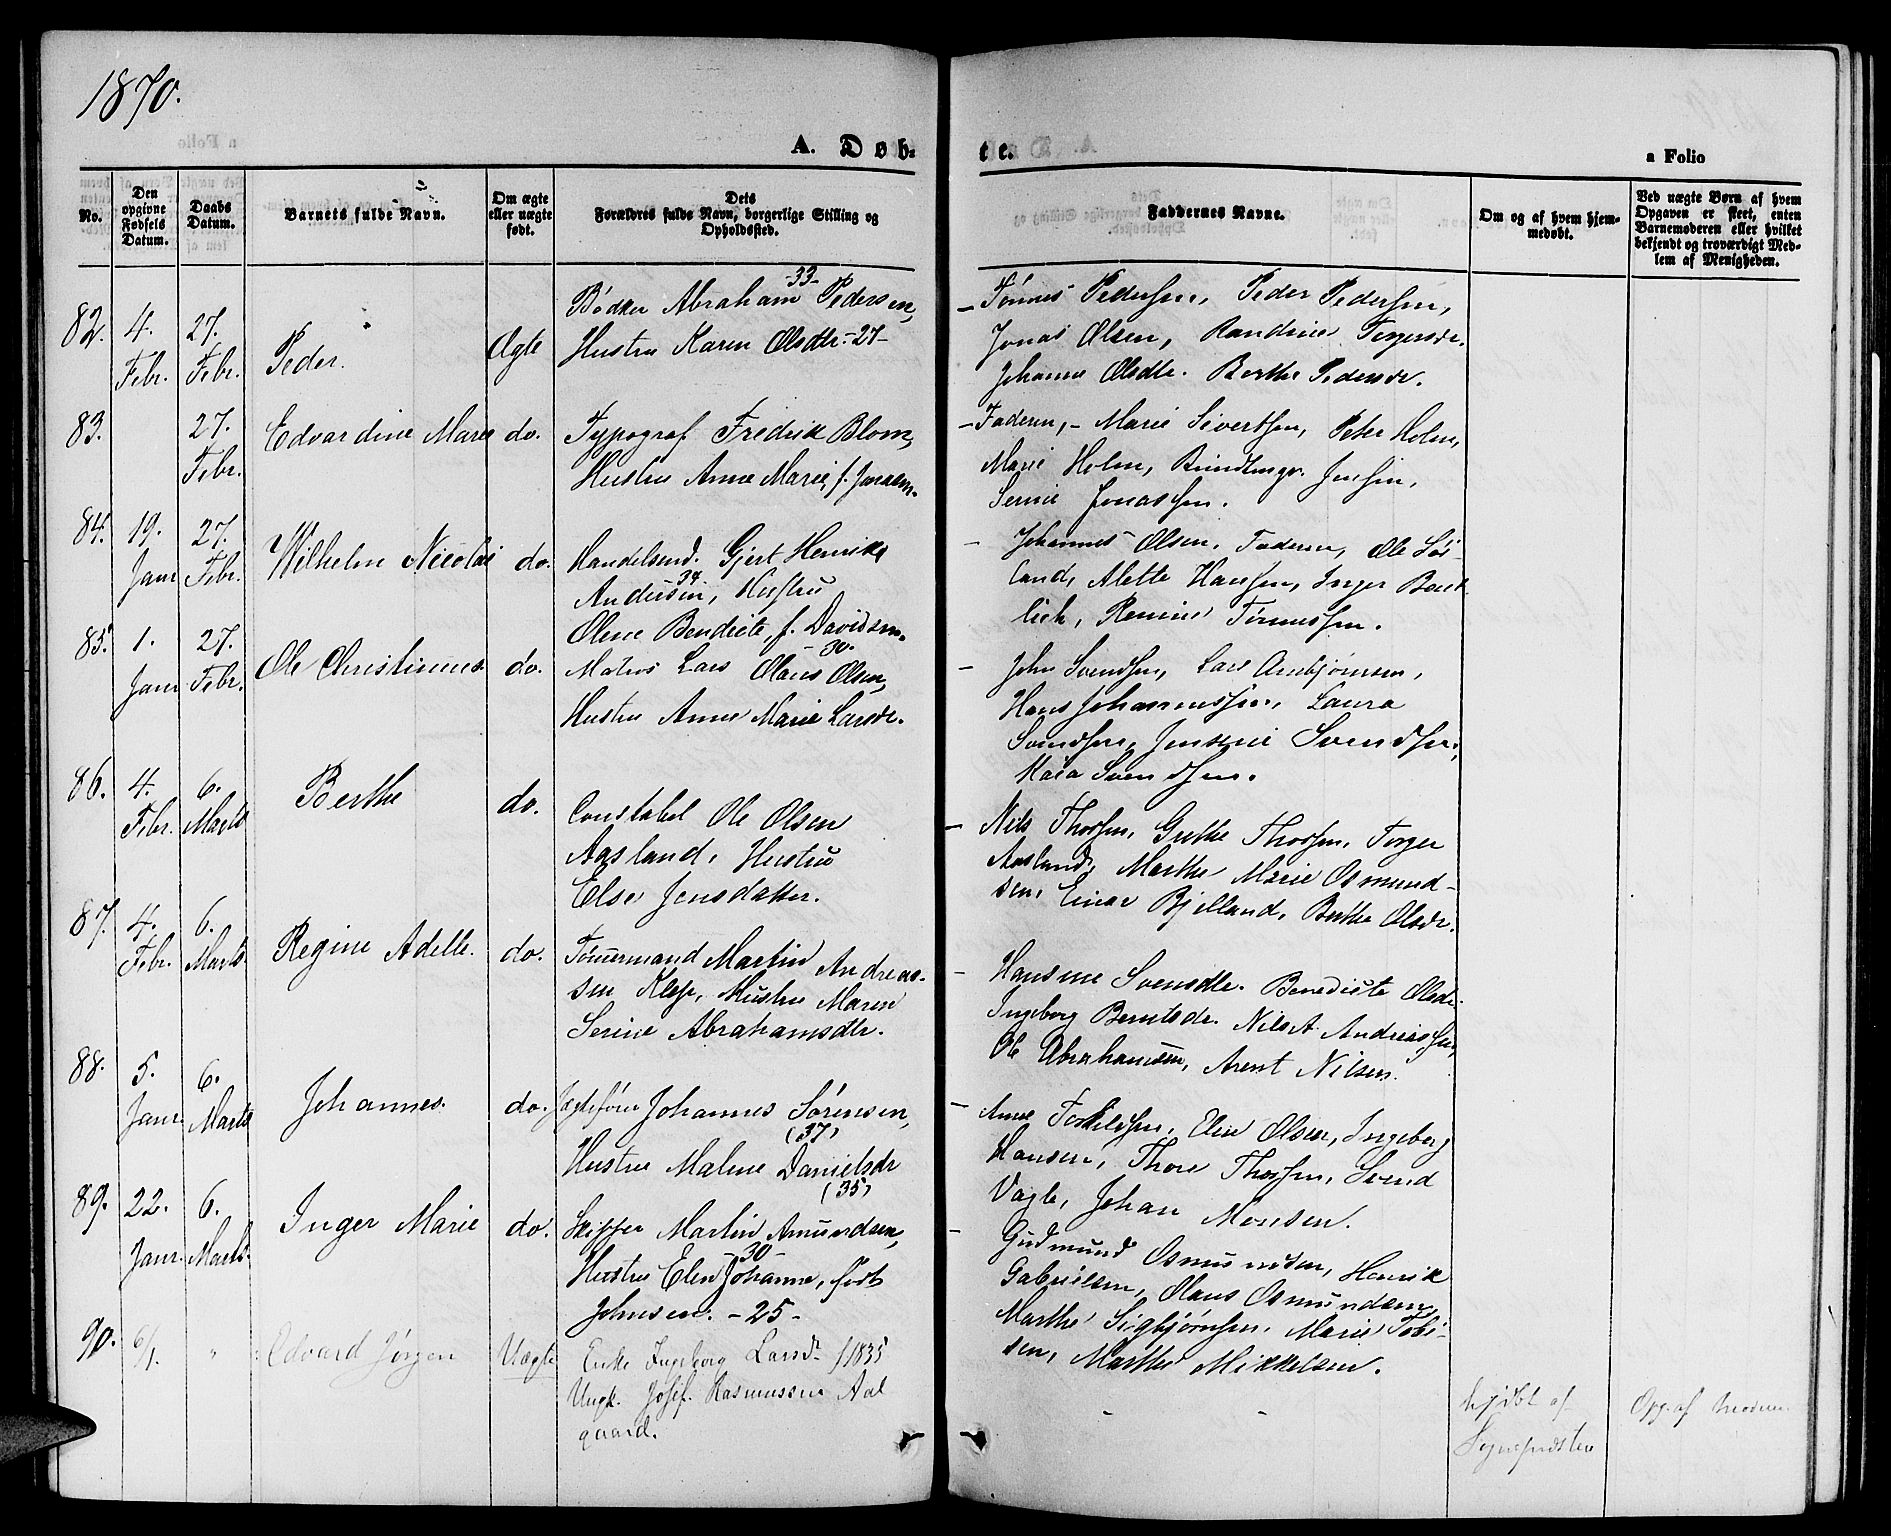 1870.
A. Døb-
te.
a Folio
No.
Den opgivne Fødsels Datum.
Daabs Datum.
Barnets fulde Navn.
Om ægte eller uægte født.
Dets Forældres fulde Navn, borgerlige Stilling og Opholdssted.
Faddernes Navne.
Om og af hvem hjem-
medøbt.
Ved uægte Børn af hvem
Opgaven er skeet, enten
Barnemoderen eller hvilket
bekjendt og troværdigt Med-
lem af Menigheden.
82. 4. Febr. 27. Febr. Peder. Ægte
Bødker Abraham Pedersen, -33-
Hustru Karen Olsdtr. -27-
Tønnes Pedersen, Peder Pedersen,
Jonas Olsen, Randine Torgersdr.
Johanne Olsdtr. Berthe Pedersdr.
83. 27. Febr. Edvardine Marie do.
Typograf Fredrik Blom,
Hustru Anne Marie, f. Jonasen.
Faderen, - Marie Sivertsen, Peter Holm,
Marie Holm, Jensen,
Serine Jonassen.
84. 19. Janr 27. Febr. Wilhelm Nicolai do.
Handelsmd. Gjert Henrik
Andersen, 34 Hustru
Olene Bendicte, f. Davidsen.
Johannes Olsen, Faderen, Ole Løs-
land, Alette Hansen, Inger
lich, Tønnessen.
85. 1. Janr 27. Febr. Ole Christinus do.
Matros Lars Olaus Olsen, -30.
Hustru Anne Marie Larsdr.
John Svendsen, Lars Arnbjørnsen,
Hans Johannessen, Laura
Svendsen, Jensine Svendsen,
Kaia Svendsen.
86. 4. Febr. 6. Marts Berthe do.
Constabel Ole Olsen
Aasland, Hustru
Else Jensdatter.
Nils Thorsen, Grethe Thorsen, Torger
Aasland, Marthe Marie Osmund-
sen, Einar Bjelland, Berthe Olsdr.
87. 4. Febr. 6. Marts. Regine Adelle. do.
Tømmermand Martin Andreas-
sen Klep, Hustru Maren
Serine Abrahamsdtr.
Hansine Svensdtr. Benedicte Olsdr.
Ingeborg Berntsdr. Nils A. Andreassen,
Ole Abrahamsen, Arent Nilsen.
88. 5. Janr. 6. Marts Johannes. do.
Jægtefører Johannes Sørensen, (37)
Hustru Maline Danielsdr (35)
Anne Torkildsen, Eline Olsen, Ingeborg
Hansen, Thore Thorsen, Svend
Vagle, Johan Monsen.
89. 22. Janr. 6. Marts. Inger Marie do.
Skipper Martin Amundsen, -30-
Hustru Elen Johanne, født
Johnsen. -25-
Gudmund Osmundsen, Henrik
Gabrielsen, Olaus Osmundsen,
Marthe Sigbjørnsen, Marie Tobi-
sen, Marthe Mikkelsen.
90. 6/1. " Edvard Jørgen Uægte
Enke Ingeborg Larsdr f 1835
Ungk. Josef Rasmussen Aal
gaard.
- -
hjdbt af
Opg. af Moderen